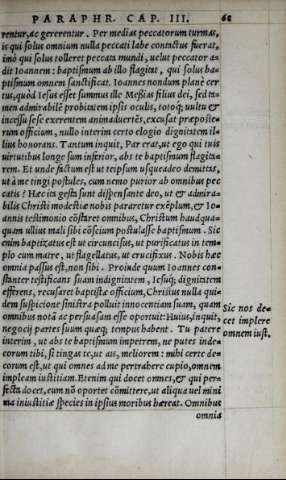 PARAPHR. CAP. III. 68
rentur, ac gererentur. Per medias peccatorum turmas,
is qui solus omnium nulla peccati labe contactus fuerat,
imò qui solus tolleret peccata mundi, uelut peccator a-
dit Ioannem: baptismum ab illo flagitat, qui solus ba-
ptismum omnem sanctificat. Ioannes nondum planè cer
tus, quòd Iesus esset summus ille Messias filius dei, sed ta-
men admirabilē probitatem ipsis oculis, totoq; uultu &
incessu sese exerentem animaduertēs, excusat præposte-
rum officium, nullo interim certo elogio dignitatem il-
lius honorans. Tantum inquit, Par erat, ut ego qui tuis
uirtutibus longe sum inferior, abs te baptismum flagita-
rem. Et unde factum est ut teipsum usqueadeo demittas,
ut à me tingi postules, cum nemo purior ab omnibus pec
catis? Hæc ita gesta sunt dispensante deo, ut & admira-
bilis Christi modestiæ nobis pararetur exēplum, & Io-
annis testimonio cōstaret omnibus, Christum haudqua-
quam ullius mali sibi cōscium postulasse baptismum. Sic
enim baptizatus est ut circuncisus, ut purificatus in tem-
plo cum matre, ut flagellatus, ut crucifixus. Nobis hæc
omnia passus est, non sibi. Proinde quum Ioannes con-
stanter testificans suam indignitatem, Iesuq; dignitatem
efferens, recusaret baptistæ officium, Christus nulla qui-
dem suspicione sinistra polluit innocentiam suam, quam
omnibus notā ac persuasam esse oportuit: Huius, inquit,
negocij partes suum quæq; tempus habent. Tu patere
interim, ut abs te baptismum impetrem, ne putes inde-
corum tibi, si tingas te, ut ais, meliorem: mihi certe de-
corum est, ut qui omnes ad me pertrahere cupio, omnem
impleam iustitiam. Etenim qui docet omnes, & qui per-
fecta docet, eum nō oportet cōmittere, ut aliqua uel mini
ma iniustitiæ species in ipsius moribus hæreat. Omnibus
omnia
Sic nos de-
cet implere
omnem iust.